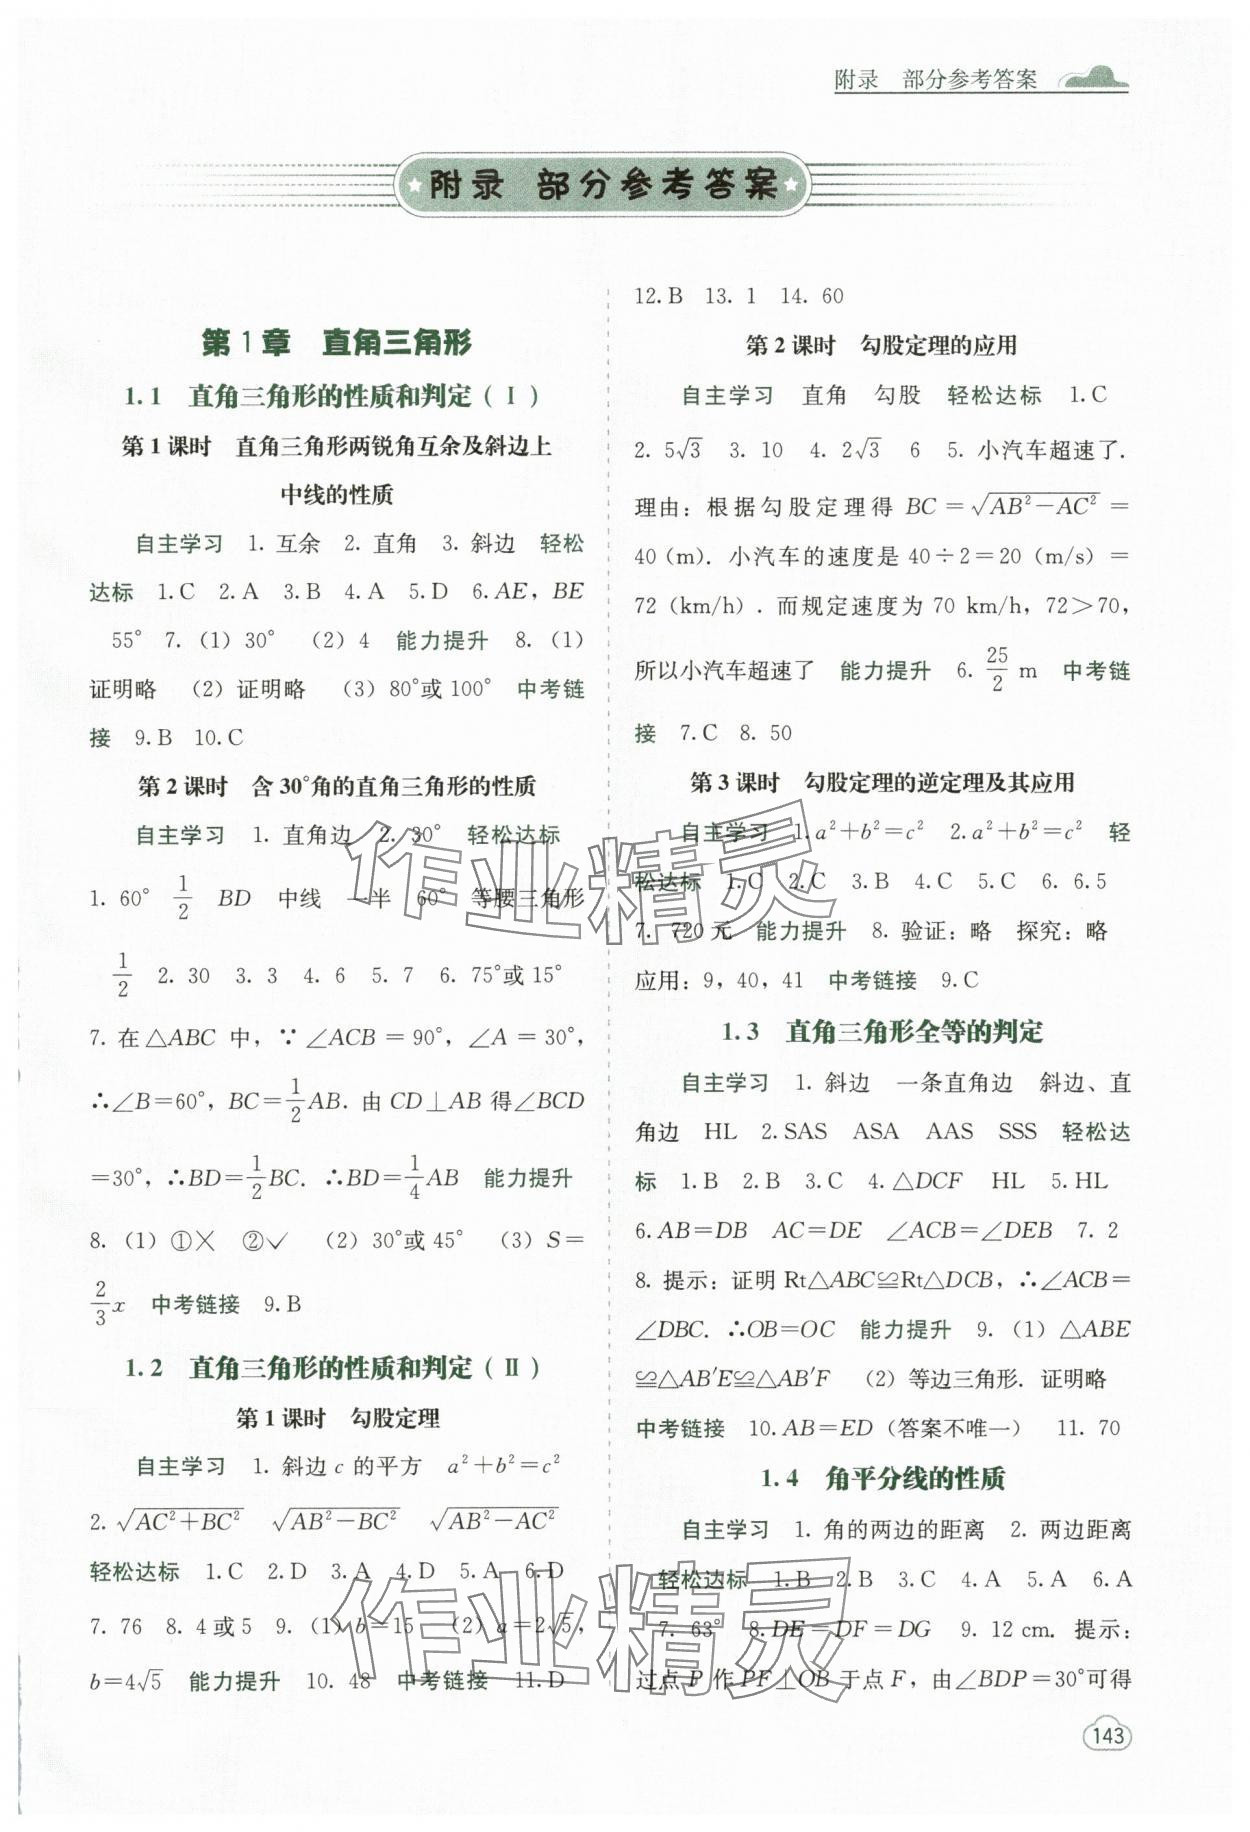 附录　部分参考答案
附录　部分参考答案
第1章　直角三角形
1.1　直角三角形的性质和判定(Ⅰ)
第1课时　直角三角形两锐角互余及斜边上
中线的性质
自主学习　1. 互余　2. 直角　3. 斜边　轻松
达标　1. C　2. A　3. B　4. A　5. D　6. AE，BE
55°　7.（1）30°　（2）4　能力提升　8.（1）
证明略　（2）证明略　（3）80°或100°　中考链
接　9. B　10. C
第2课时　含30°角的直角三角形的性质
自主学习　1. 直角边　2. 30°　轻松达标
1. 60°　1/2　BD　中线　一半　60°　等腰三角形
1/2　2. 30　3. 3　4. 6　5. 7　6. 75°或15°
7. 在△ABC 中，∵∠ACB＝90°，∠A＝30°，
∴∠B＝60°，BC＝1/2AB. 由 CD⊥AB 得∠BCD
＝30°，∴BD＝1/2BC. ∴BD＝1/4AB　能力提升
8.（1）①╳　②✓　（2）30°或45°　（3）S＝
2/3x　中考链接　9. B
1.2　直角三角形的性质和判定(Ⅱ)
第1课时　勾股定理
自主学习　1. 斜边 c 的平方　a²＋b²＝c²
2. √(AC²＋BC²)　√(AB²－BC²)　√(AB²－AC²)
轻松达标　1. C　2. D　3. A　4. D　5. A　6. D
7. 76　8. 4或5　9.（1）b＝15　（2）a＝2√5，
b＝4√5　能力提升　10. 48　中考链接　11. D
12. B　13. 1　14. 60
第2课时　勾股定理的应用
自主学习　直角　勾股　轻松达标　1. C
2. 5√3　3. 10　4. 2√3　6　5. 小汽车超速了.
理由：根据勾股定理得 BC＝√(AB²－AC²)＝
40（m）. 小汽车的速度是 40÷2＝20（m/s）＝
72（km/h）. 而规定速度为 70 km/h，72＞70，
所以小汽车超速了　能力提升　6. 25/2 m　中考链
接　7. C　8. 50
第3课时　勾股定理的逆定理及其应用
自主学习　1. a²＋b²＝c²　2. a²＋b²＝c²　轻
松达标　1. C　2. C　3. B　4. C　5. C　6. 6.5
7. 720元　能力提升　8. 验证：略　探究：略
应用：9，40，41　中考链接　9. C
1.3　直角三角形全等的判定
自主学习　1. 斜边　一条直角边　斜边、直
角边　HL　2. SAS　ASA　AAS　SSS　轻松达
标　1. B　2. B　3. C　4. △DCF　HL　5. HL
6. AB＝DB　AC＝DE　∠ACB＝∠DEB　7. 2
8. 提示：证明 Rt△ABC≌Rt△DCB，∴∠ACB＝
∠DBC. ∴OB＝OC　能力提升　9.（1）△ABE
≌△AB′E≌△AB′F　（2）等边三角形. 证明略
中考链接　10. AB＝ED（答案不唯一）　11. 70
1.4　角平分线的性质
自主学习　1. 角的两边的距离　2. 两边距离
轻松达标　1. B　2. B　3. C　4. A　5. A　6. A
7. 63°　8. DE＝DF＝DG　9. 12 cm. 提示：
过点 P 作 PF⊥OB 于点 F，由∠BDP＝30°可得
143
作业精灵
作业精灵